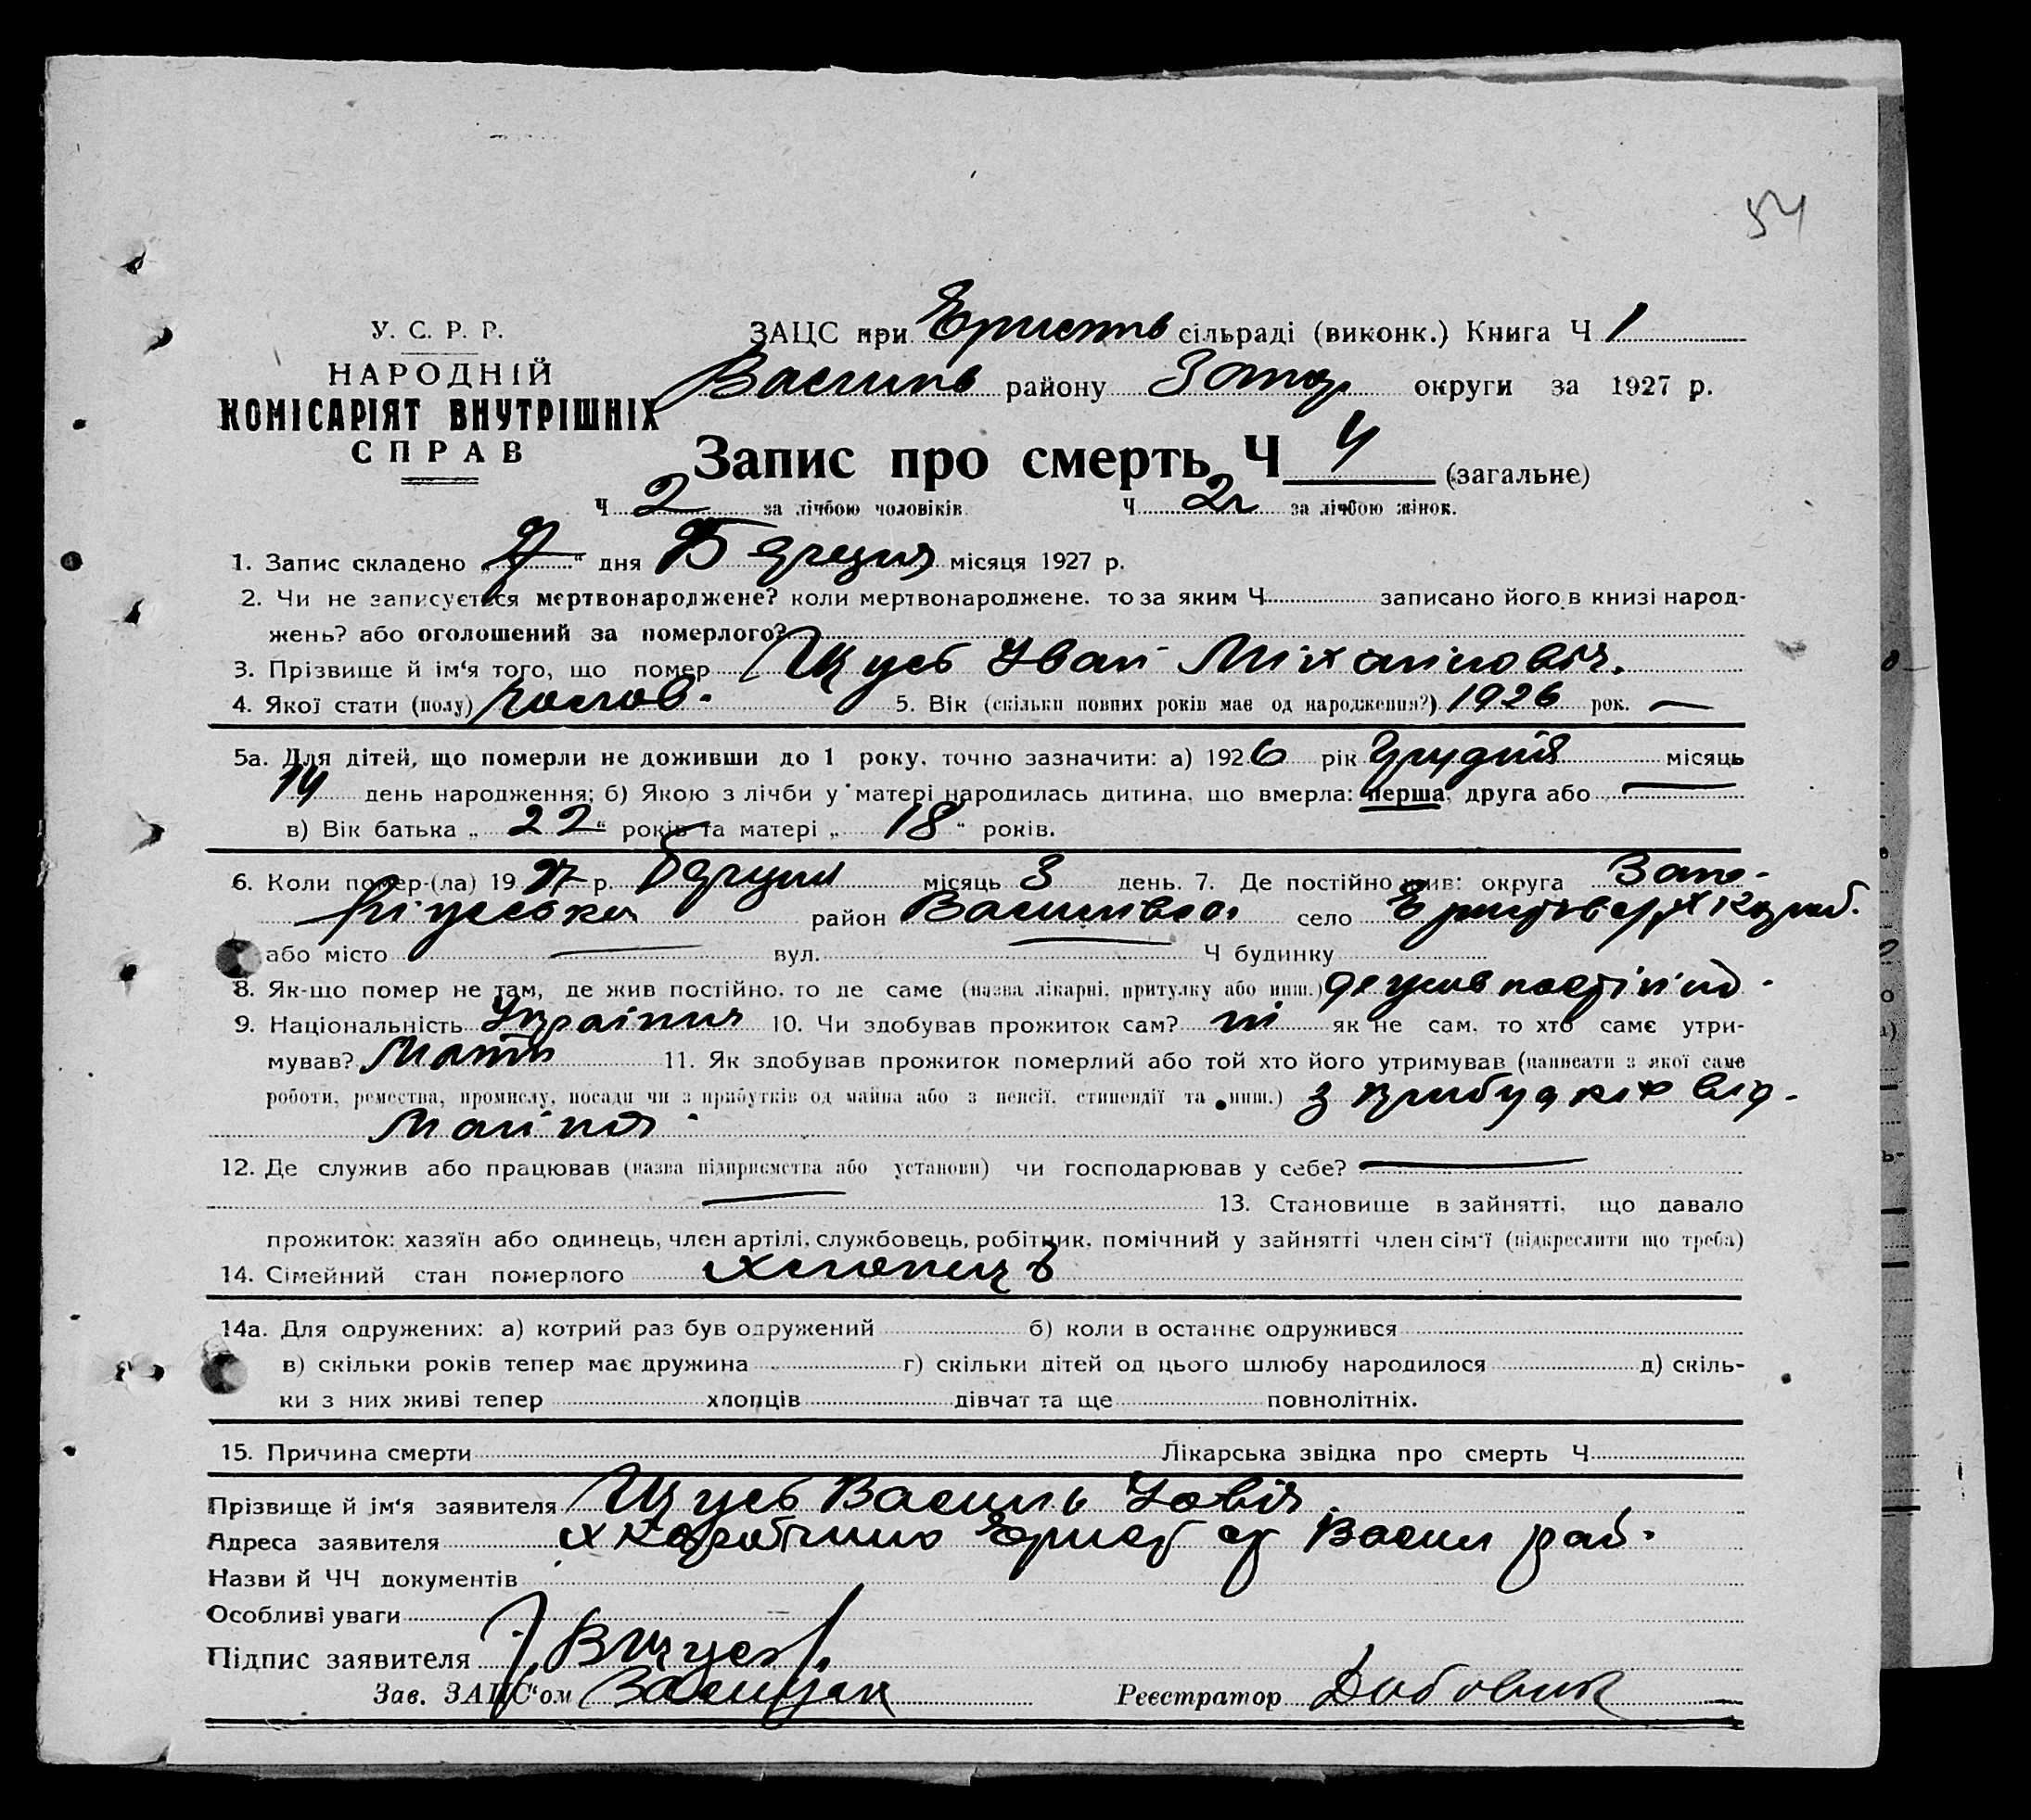 54
У. С. Р. Р.
НАРОДНІЙ
КОМІСАРІЯТ ВНУТРІШНІХ
СПРАВ
ЗАЦС при Ерист сільраді (виконк.) Книга Ч 1
Василів району Запор округи за 1927 р.
Запис про смерть Ч 4 (загальне)
Ч 2 за лічбою чоловіків. Ч 2 за лічбою жінок.
1. Запис складено „ “ дня Березня місяця 1927 р.
2. Чи не записується мертвонароджене? коли мертвонароджене, то за яким Ч записано його в книзі народ-
жень? або оголошений за померлого?
3. Прізвище й ім‘я того, що помер Щусь Іван Міхайловіч.
4. Якої стати (полу) чолов. 5. Вік (скільки повних років має од народження?) 1926 рок. —
5а. Для дітей, що померли не доживши до 1 року, точно зазначити: а) 1926 рік Грудня місяць
14 день народження; б) Якою з лічби у матері народилась дитина, що вмерла: перша, друга або —
в) Вік батька „ 22 “ років та матері „ 18 “ років.
6. Коли помер-(ла) 1927 р. березня місяць 3 день. 7. Де постійно жив: округа Запо-
ріжська район Василівсь село х
або місто — вул. — Ч будинку
8. Як-що помер не там, де жив постійно, то де саме (назва лікарні, притулку або инш.) де жив постійно.
9. Національність Українця 10. Чи здобував прожиток сам? ні як не сам, то хто саме утри-
мував? Мати 11. Як здобував прожиток померлий або той хто його утримував (написати з якої саме
роботи, ремества, промислу, посади чи з прибутків од майна або з пенсії, стипендії та инш.) з прибутків від
Майна
12. Де служив або працював (назва підприємства або установи) чи господарював у себе? —
— 13. Становище в зайнятті, що давало
прожиток: хазяїн або одинець, член артілі, службовець, робітник, помічний у зайнятті член сім‘ї (підкреслити що треба)
14. Сімейний стан померлого хлопець
14а. Для одружених: а) котрий раз був одружений б) коли в останнє одружився
в) скільки років тепер має дружина г) скільки дітей од цього шлюбу народилося д) скіль-
ки з них живі тепер хлопців дівчат та ще повнолітніх.
15. Причина смерти Лікарська звідка про смерть Ч
Прізвище й ім‘я заявителя Щусь Василь
Адреса заявителя х Ерист ср Васил рай.
Назви й ЧЧ документів
Особливі уваги
Підпис заявителя В Щусь
Зав. ЗАЦС‘ом Реєстратор